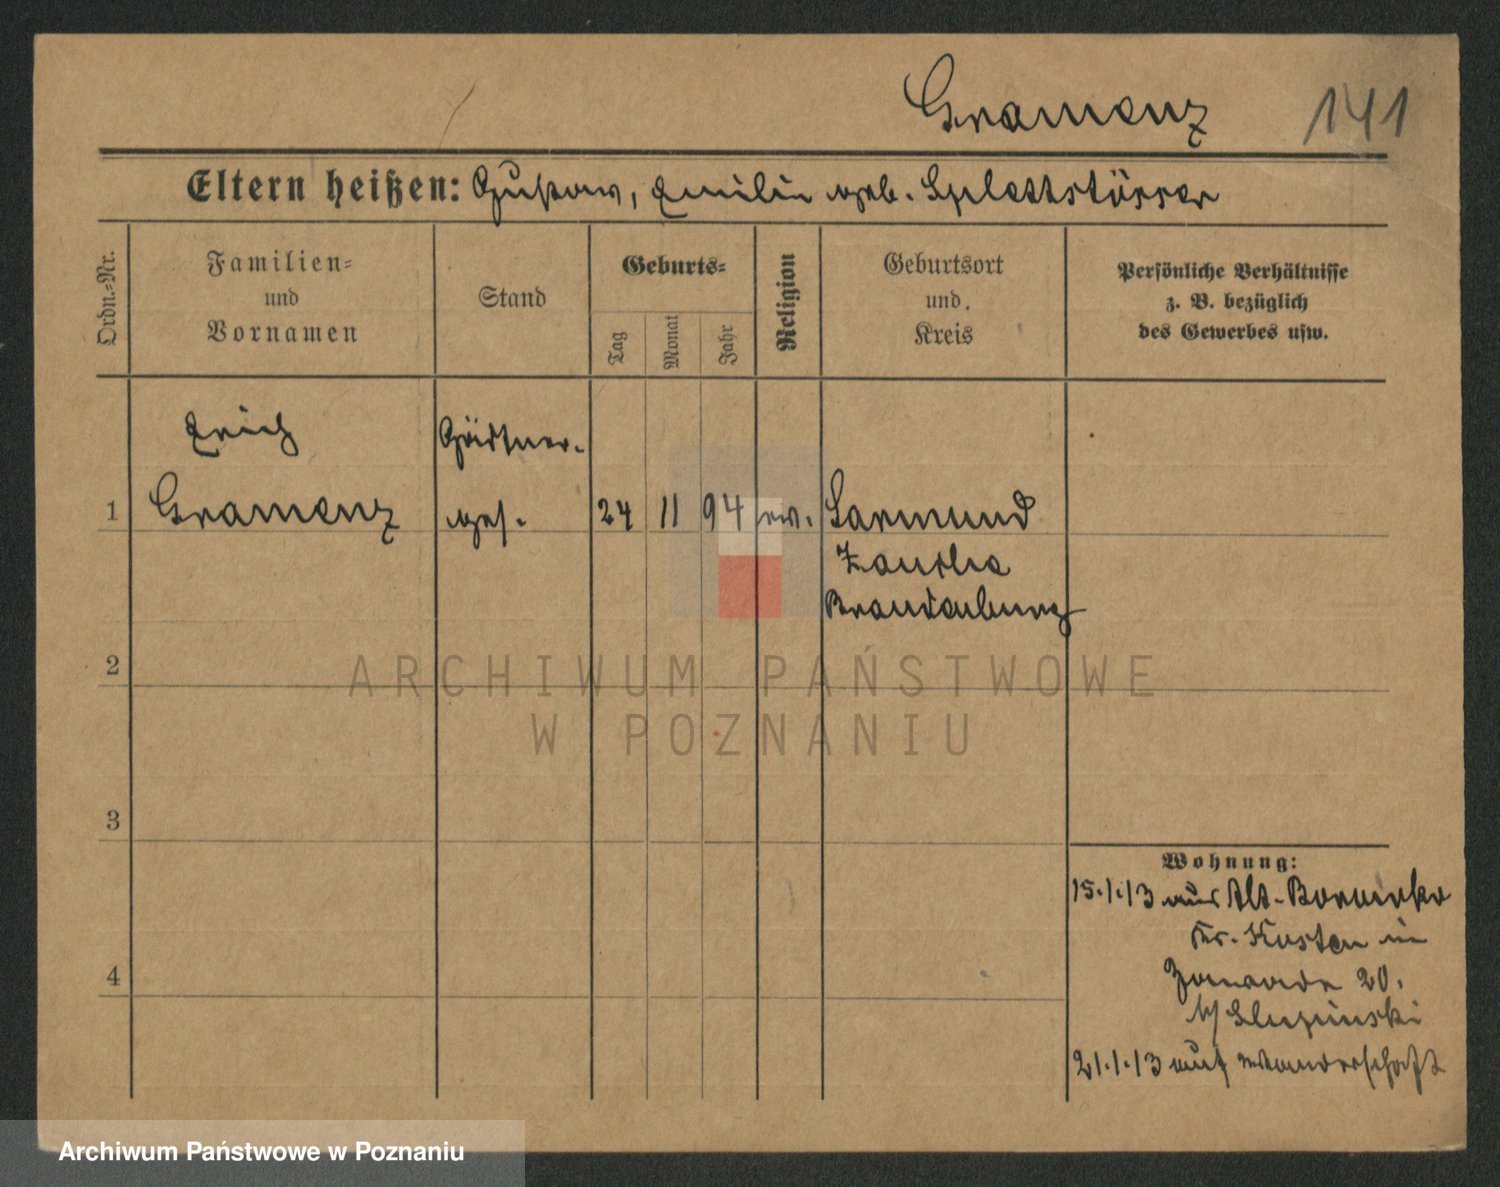 Gramenz 141
Eltern heißen: Gustav, Emilie geb. Splettstösser
Ordn.-Nr.
Familien-
und
Vornamen
Stand
Geburts-
Tag
Monat
Jahr
Religion
Geburtsort
und
Kreis
Persönliche Verhältnisse
z. B. bezüglich
des Gewerbes usw.
Erich Gärtner-
1 Gramenz geh. 24 11 94 ev. Sarmund
Zauche
Brandenburg
2
ARCHIWUM PAŃSTWOWE
W POZNANIU
3
Wohnung:
15.1.13 aus Alt-
Kr. Kosten in
Zawade 20.
b/ Slupinski
4
21.1.13 auf Wanderschaft
Archiwum Państwowe w Poznaniu